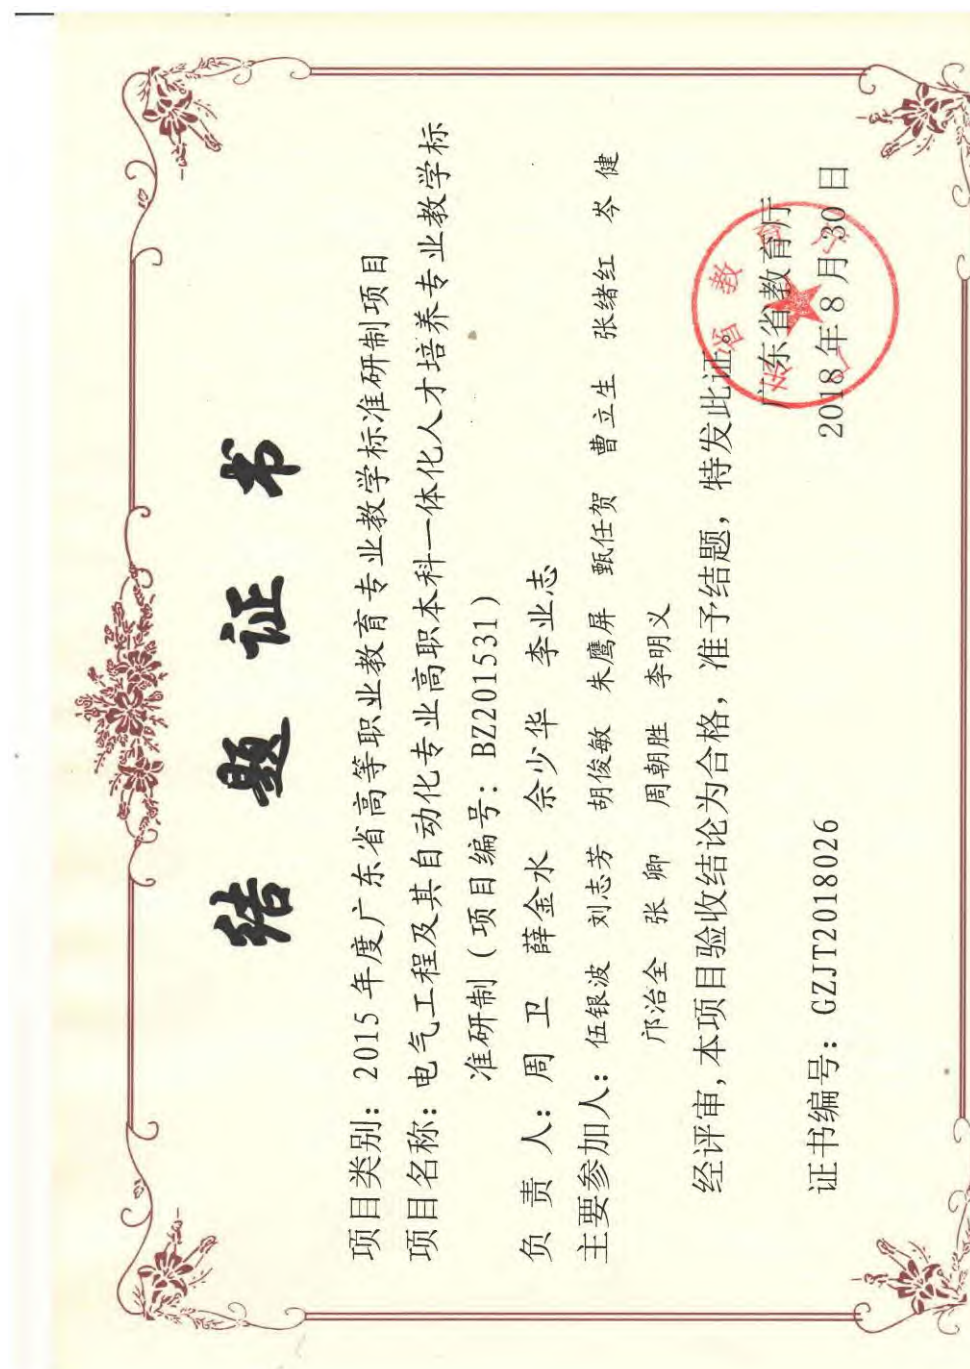 结题证书
项目类别：2015年度广东省高等职业教育专业教学标准研制项目
项目名称：电气工程及其自动化专业高职本科一体化人才培养专业教学标
准研制（项目编号：BZ201531）
负责人：周卫 薛金水 佘少华 李业志
主要参加人：伍银波 刘志芳 胡俊敏 朱鹰屏 甄任贺 曹立生 张绪红 岑健
邝治全 张卿 周朝胜 李明义
经评审，本项目验收结论为合格，准予结题，特发此证。
广东省教育厅
证书编号：GZJT2018026 2018年8月30日
广东省教育厅